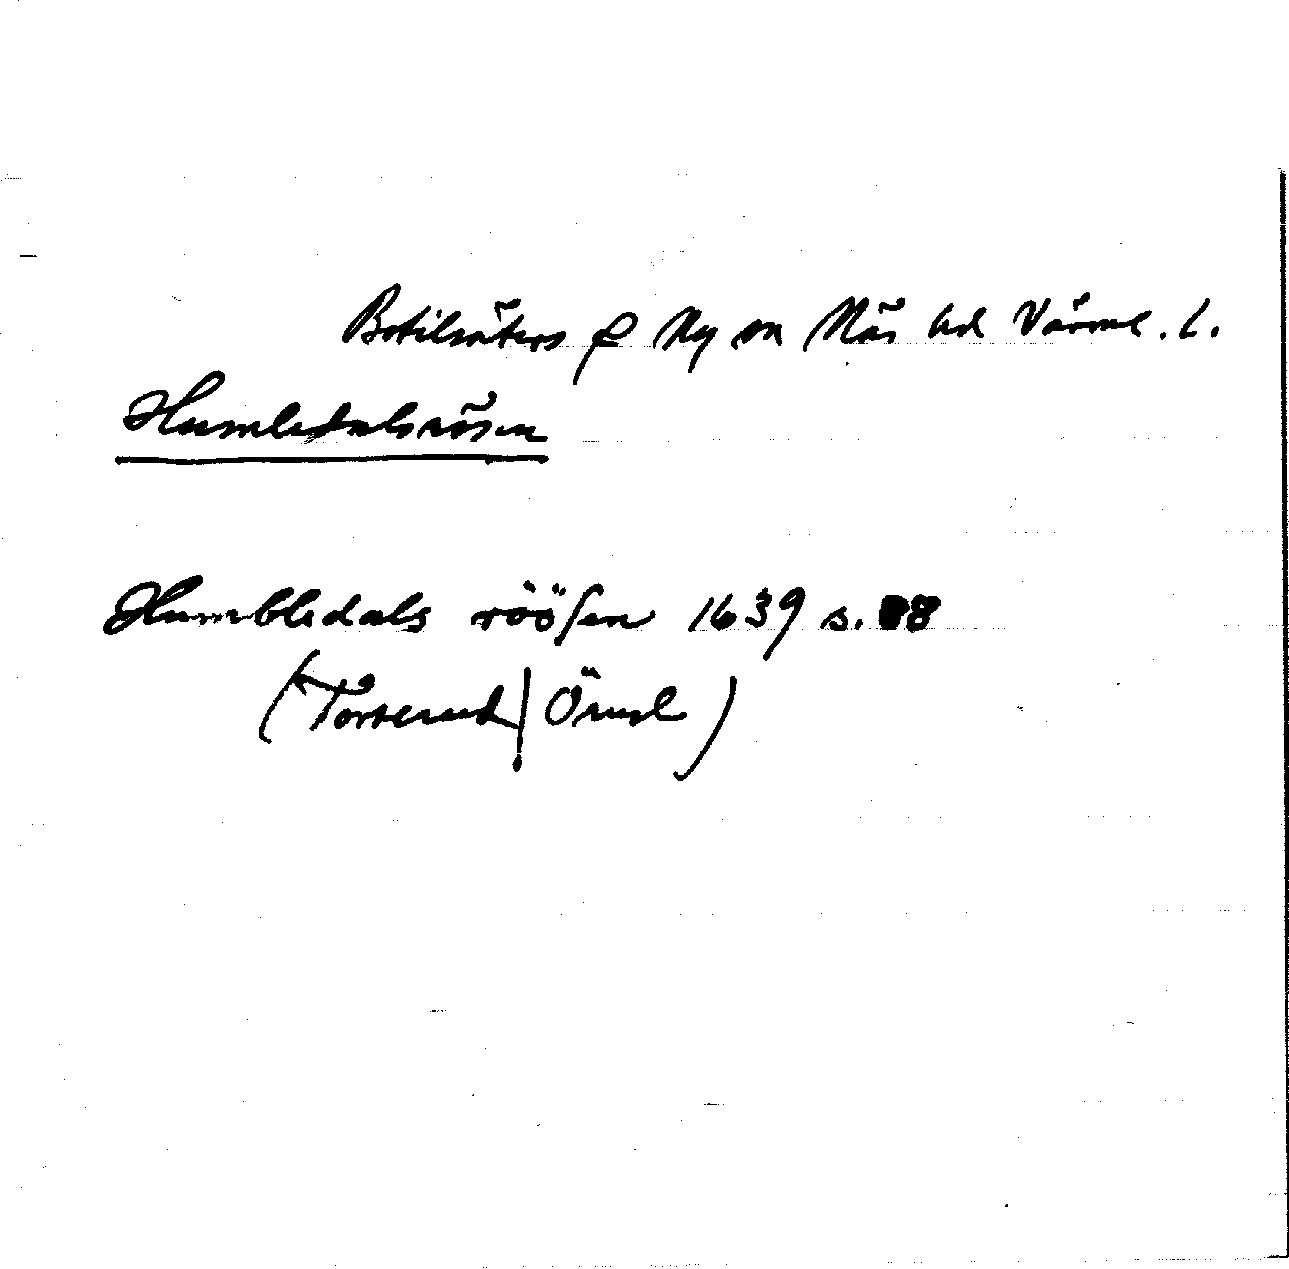 Botilsäters f Ny sn Näs hd Värml. l.
Humledalsrösen
Humbledals röösen 1639 s. 88
(Torserud / Örud)